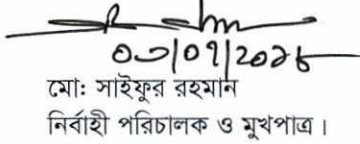 ০৩/০৭/২০২৫
মো: সাইফুর রহমান
নির্বাহী পরিচালক ও মুখপাত্র।